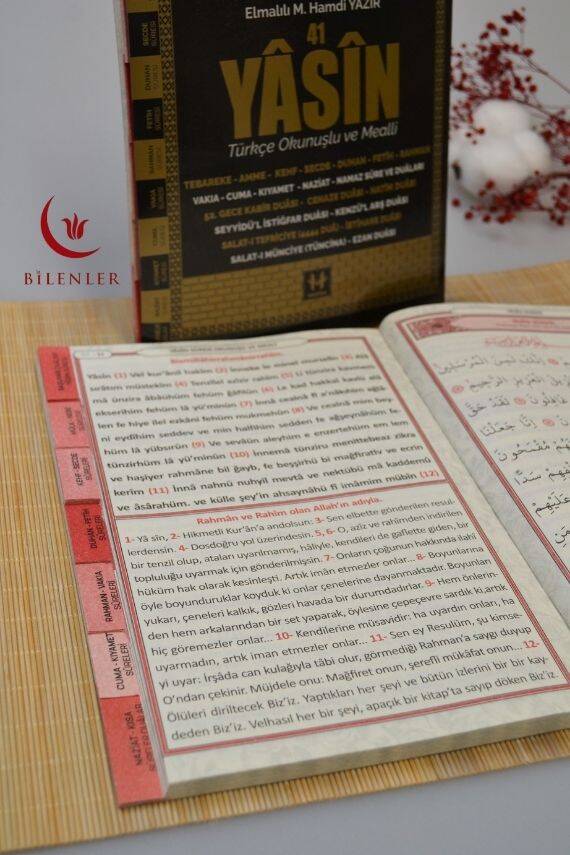 Elmalılı M. Hamdi YAZIR
41
YÂSÎN
Türkçe Okunuşlu ve Mealli
TEBAREKE - AMME - KEHF - SECDE - DUHAN - FETİH - RAHMAN
VAKIA - CUMA - KIYAMET - NAZİAT - NAMAZ SÛRE VE DUÂLARI
52. GECE KABİR DUÂSI - CENAZE DUÂSI - HATİM DUÂSI
SEYYİDÜ'L İSTİĞFAR DUÂSI - KENZÜ'L ARŞ DUÂSI
SALAT-I TEFRİCİYE (4444 DUÂ) - İSTİHARE DUÂSI
SALAT-I MÜNCİYE (TÜNCİNA) - EZAN DUÂSI
SECDE
SÛRESİ
DUHAN
SÛRESİ
FETİH
SÛRESİ
RAHMAN
SÛRESİ
VAKIA
SÛRESİ
CUMA
BİLENLER
Bismillâhirrahmânirrahîm.
Yâsîn (1) Vel kur'ânil hakîm (2) İnneke le minel murselîn (3) Alâ
sırâtım müstekîm (4) Tenzîlel azîzir rahîm (5) Li tünzira kavmem
mâ ünzira âbâühüm fehüm ğâfilûn (6) Le kad hakkal kavlü alâ
ekserihim fehüm lâ yü'minûn (7) İnnâ cealnâ fî a'nâkihim ağlâ-
len fe hiye ilel ezkâni fehüm mukmehûn (8) Ve cealnâ mim bey-
ni eydîhim seddev ve min halfihim sedden fe ağşeynâhüm fe-
hüm lâ yübsırûn (9) Ve sevâün aleyhim e enzertehüm em lem
tünzirhüm lâ yü'minûn (10) İnnemâ tünziru menittebeaz zikra
ve haşiyer rahmâne bil ğayb, fe beşşirhü bi mağfirativ ve ecrin
kerîm (11) İnnâ nahnü nuhyil mevtâ ve nektübü mâ kaddemû
ve âsârahüm. ve külle şey'in ahsaynâhü fî imâmim mübîn (12)
Rahmân ve Rahîm olan Allah'ın adıyla.
1- Yâ sîn, 2- Hikmetli Kur'ân'a andolsun; 3- Sen elbette gönderilen resul-
lerdensin. 4- Dosdoğru yol üzerindesin. 5, 6- O, azîz ve rahîmden indirilen
bir tenzil olup, ataları uyarılmamış, hâliyle, kendileri de gaflette giden, bir
topluluğu uyarmak için gönderilmişsin. 7- Onların çoğunun hakkında ilahî
hüküm hak olarak kesinleşti. Artık iman etmezler onlar... 8- Boyunlarına
öyle boyunduruklar koyduk ki onlar çenelerine dayanmaktadır. Boyunları
yukarı, çeneleri kalkık, gözleri havada bir durumdadırlar. 9- Hem önlerin-
den hem arkalarından bir set yaparak, öylesine çepeçevre sardık ki.artık
hiç göremezler onlar... 10- Kendilerine müsavidir: ha uyardın onları, ha
uyarmadın, artık iman etmezler onlar... 11- Sen ey Resulüm, şu kimse-
yi uyar: İrşâda can kulağıyla tâbi olur, görmediği Rahman'a saygı duyup
O'ndan çekinir. Müjdele onu: Mağfiret onun, şerefli mükâfat onun... 12-
Ölüleri diriltecek Biz'iz. Yaptıkları her şeyi ve bütün izlerini bir bir kay-
deden Biz'iz. Velhasıl her bir şeyi, apaçık bir kitap'ta sayıp döken Biz'iz.
KEHF - SECDE
SÛRELERİ
DUHAN - FETİH
SÛRELERİ
RAHMAN - VAKIA
SÛRELERİ
CUMA - KIYAMET
SÛRELERİ
NAZİAT - KISA
SÛRELER DUÂLAR